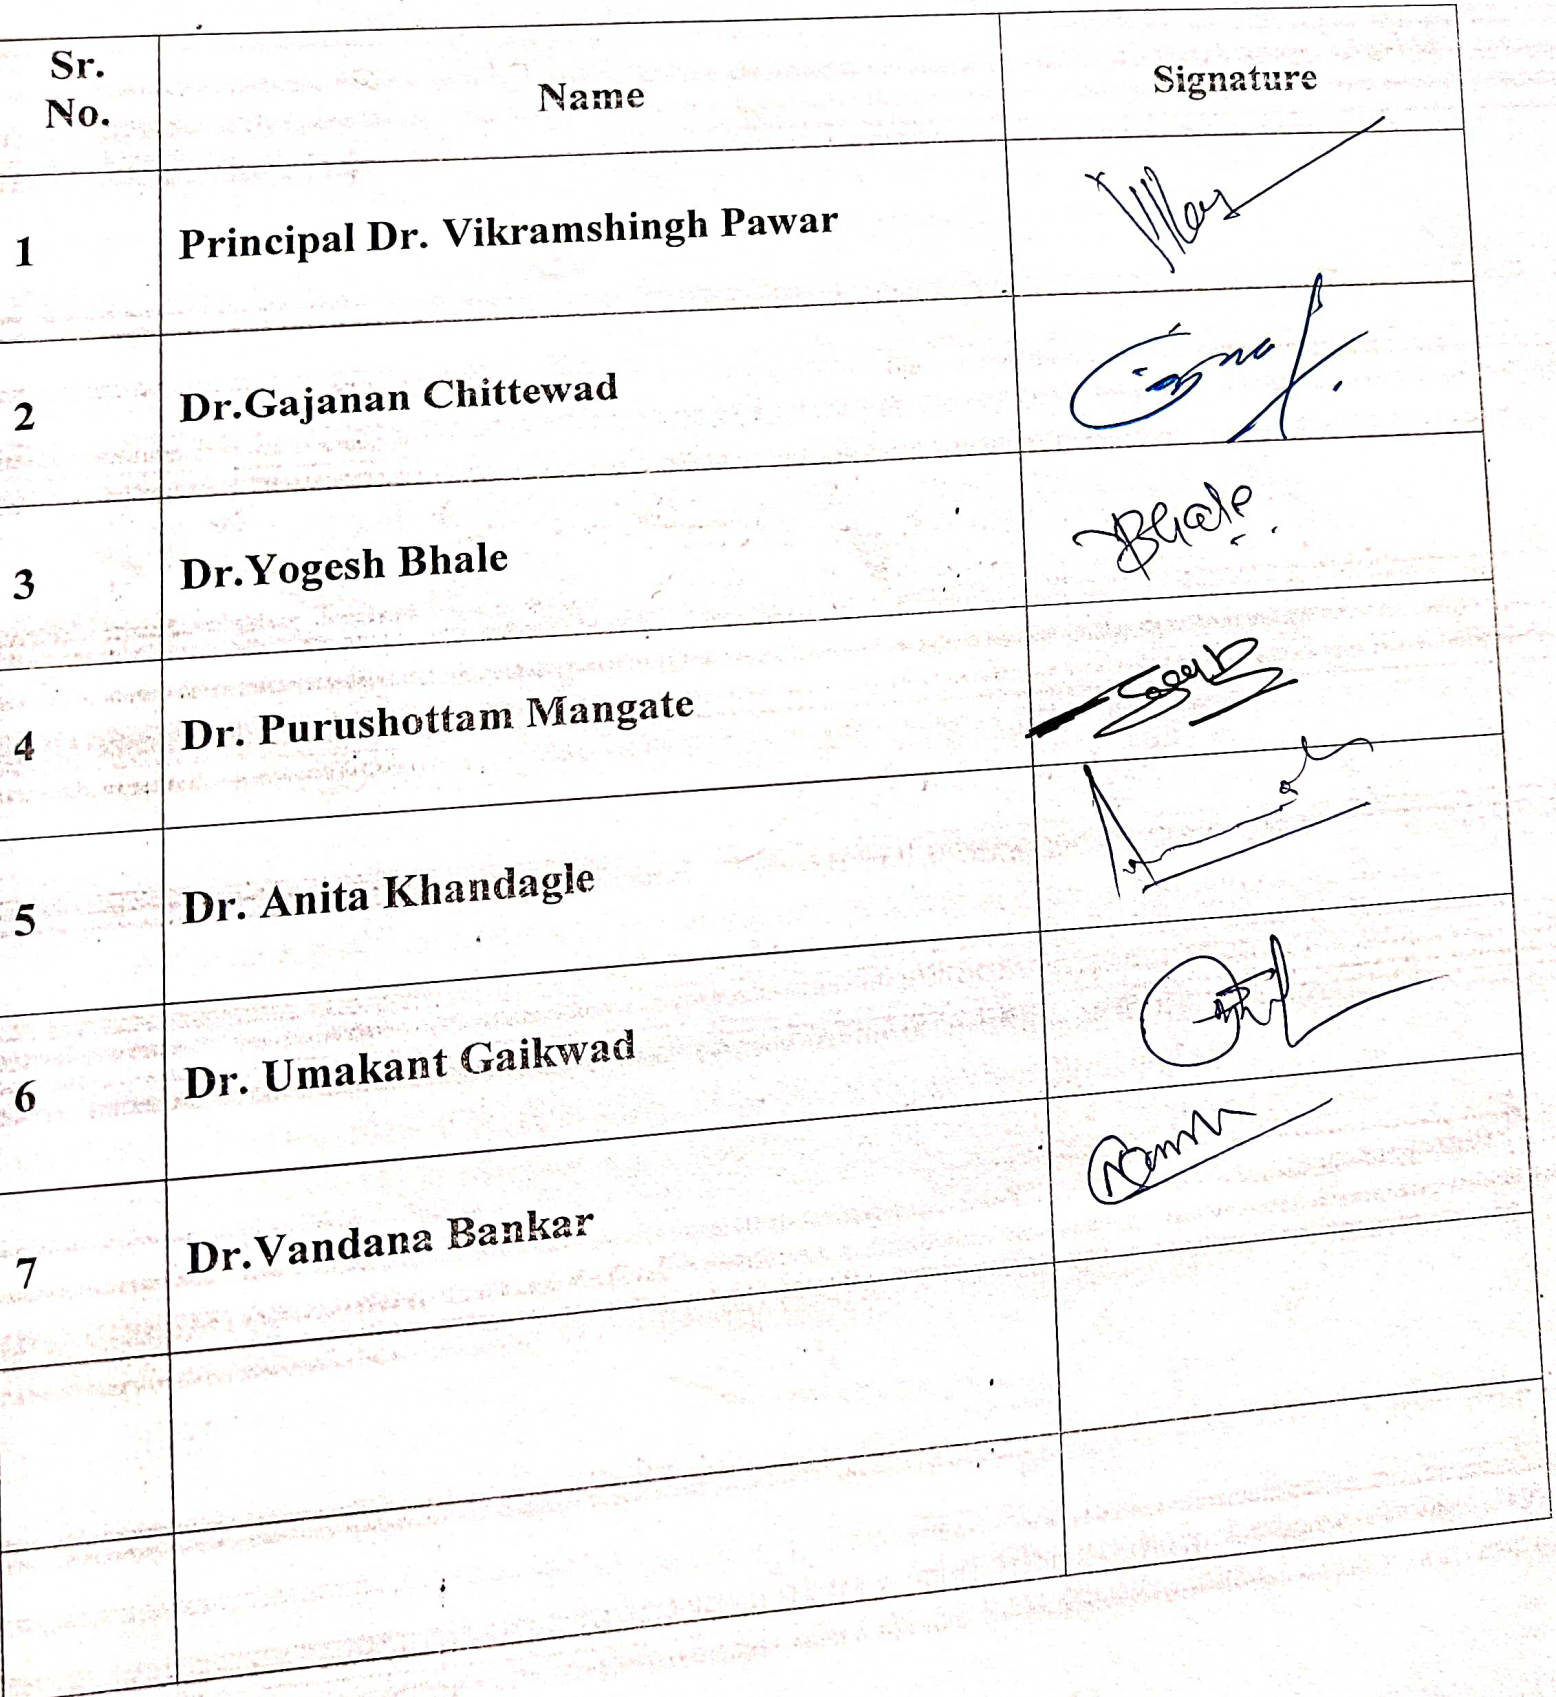 Sr. No. Name Signature
1 Principal Dr. Vikramshingh Pawar
2 Dr.Gajanan Chittewad
3 Dr.Yogesh Bhale Bhale
4 Dr. Purushottam Mangate
5 Dr. Anita Khandagle
6 Dr. Umakant Gaikwad
7 Dr.Vandana Bankar